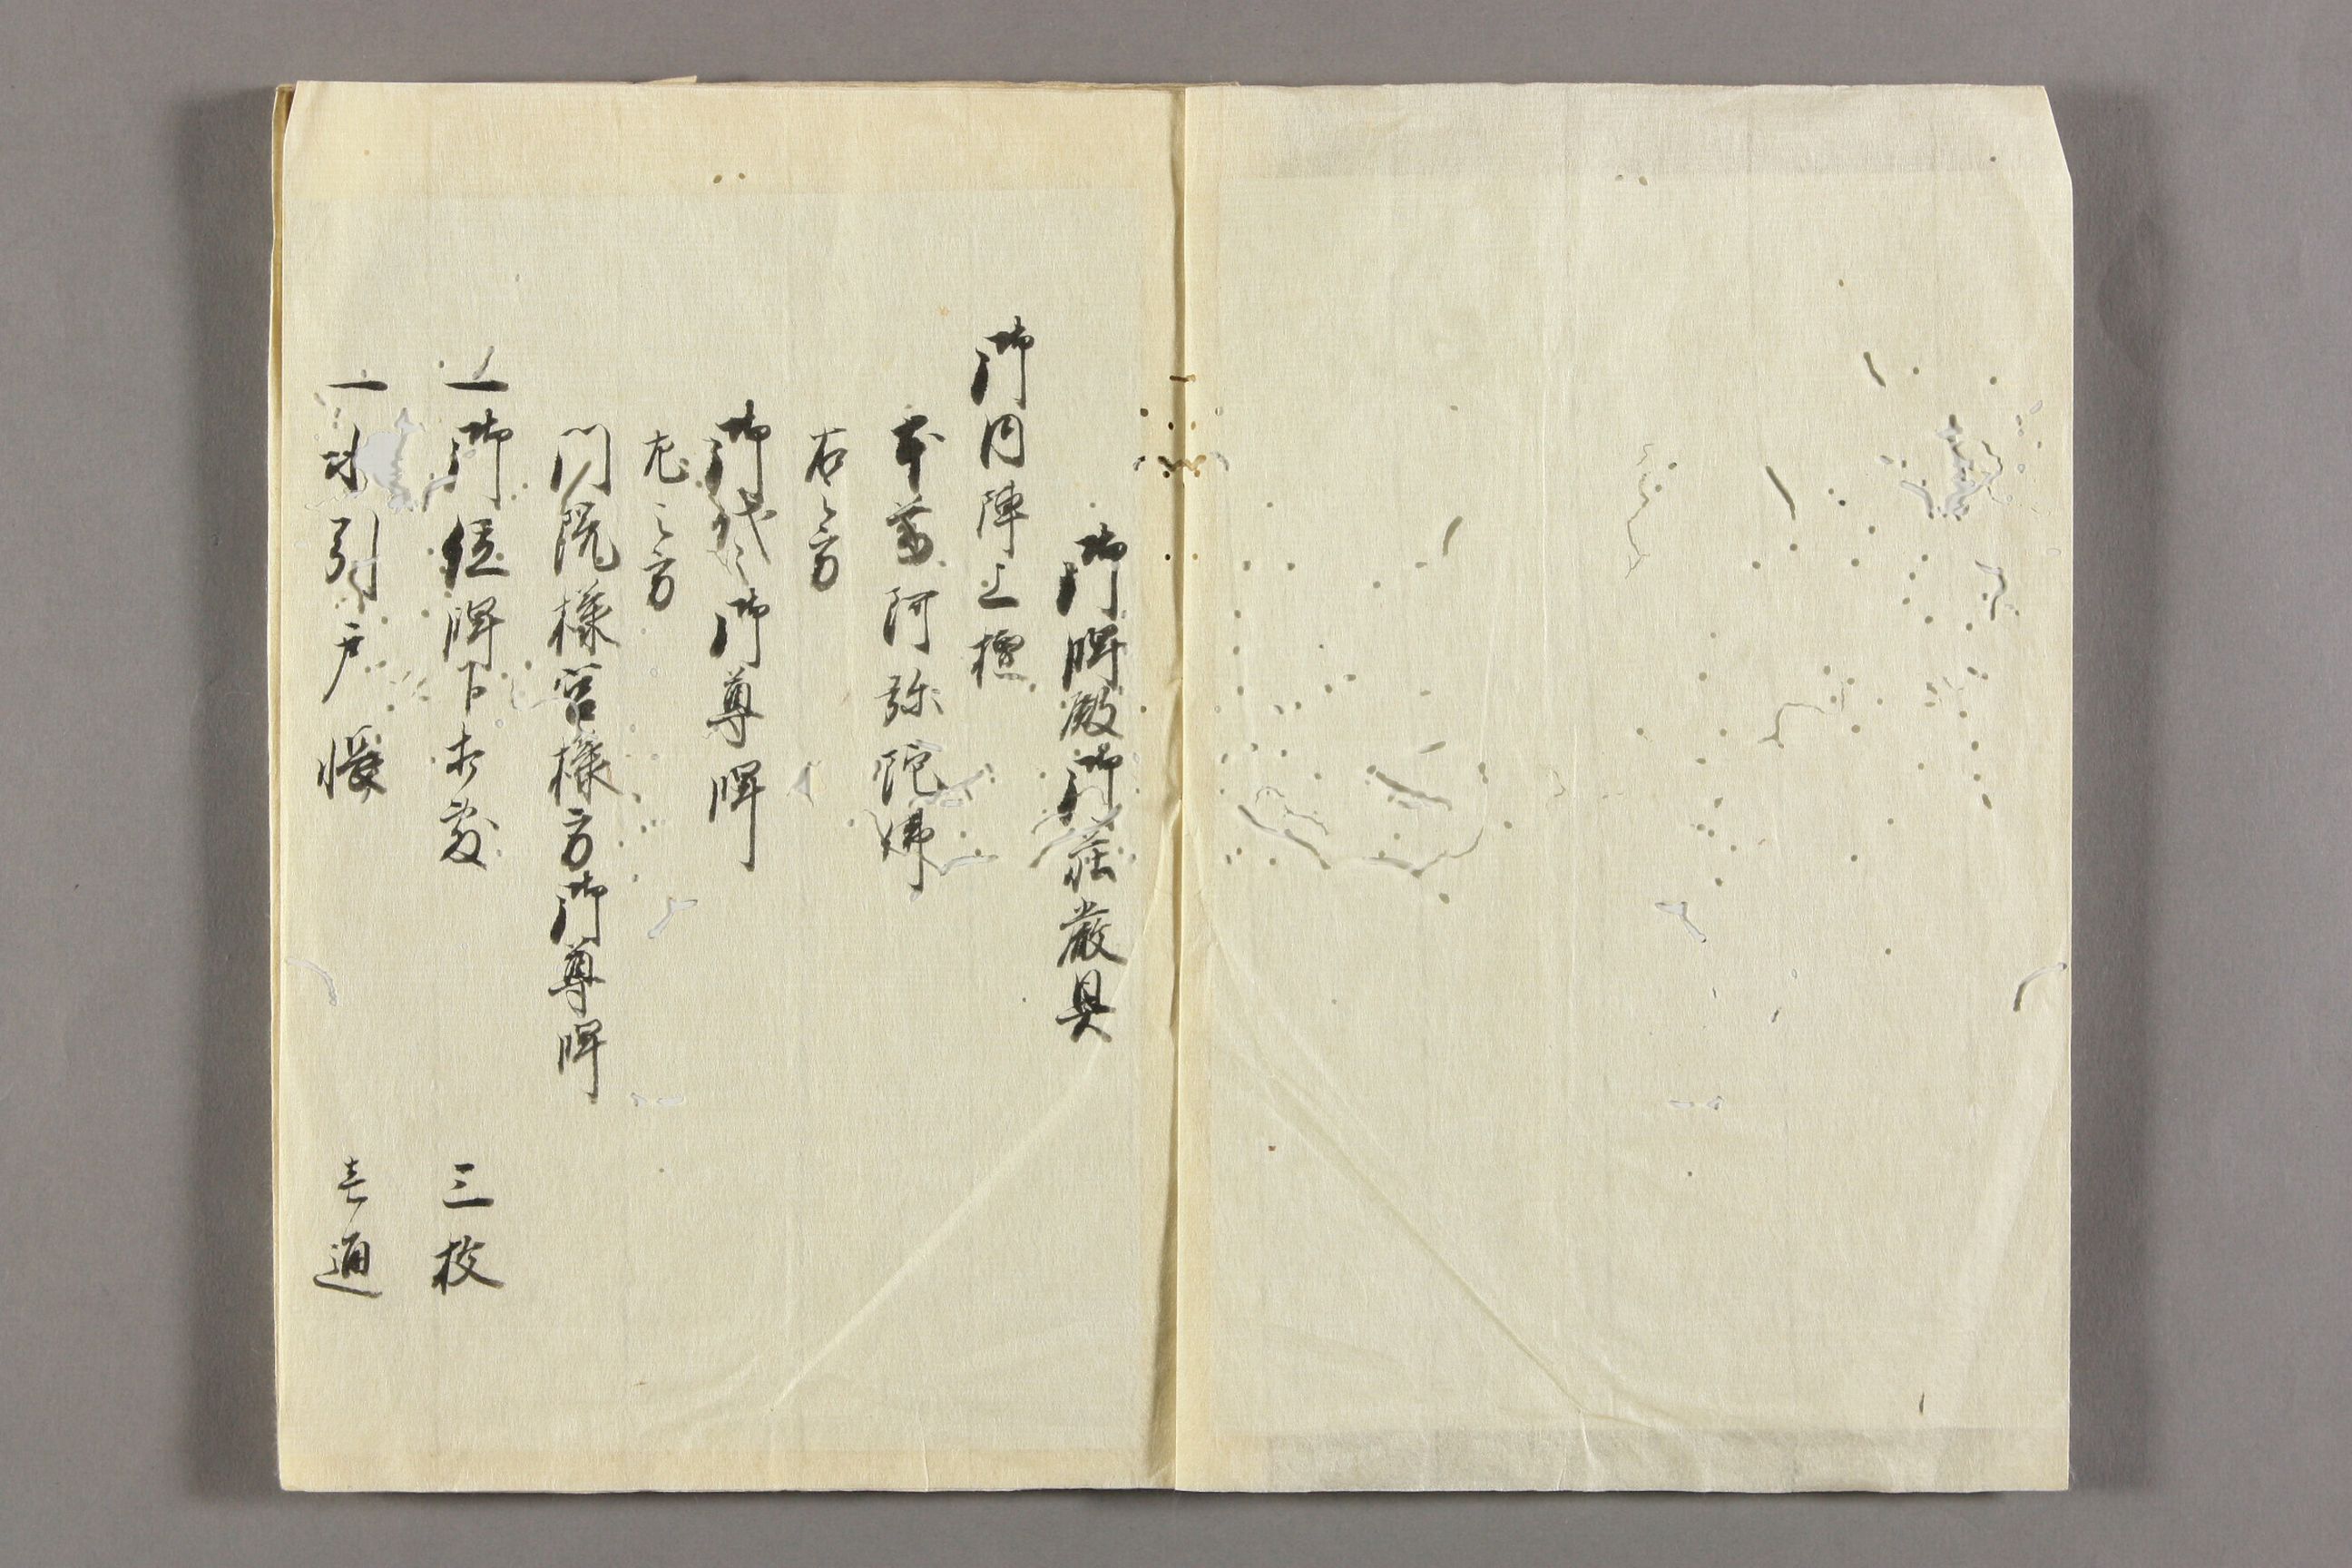 御牌殿御荘厳具
御内陣上檀
本尊阿弥陀佛
右之方
御代々御尊牌
左之方
門院様宮様方御尊牌
一御位牌下打敷 三枚
一水引戸帳 壱通